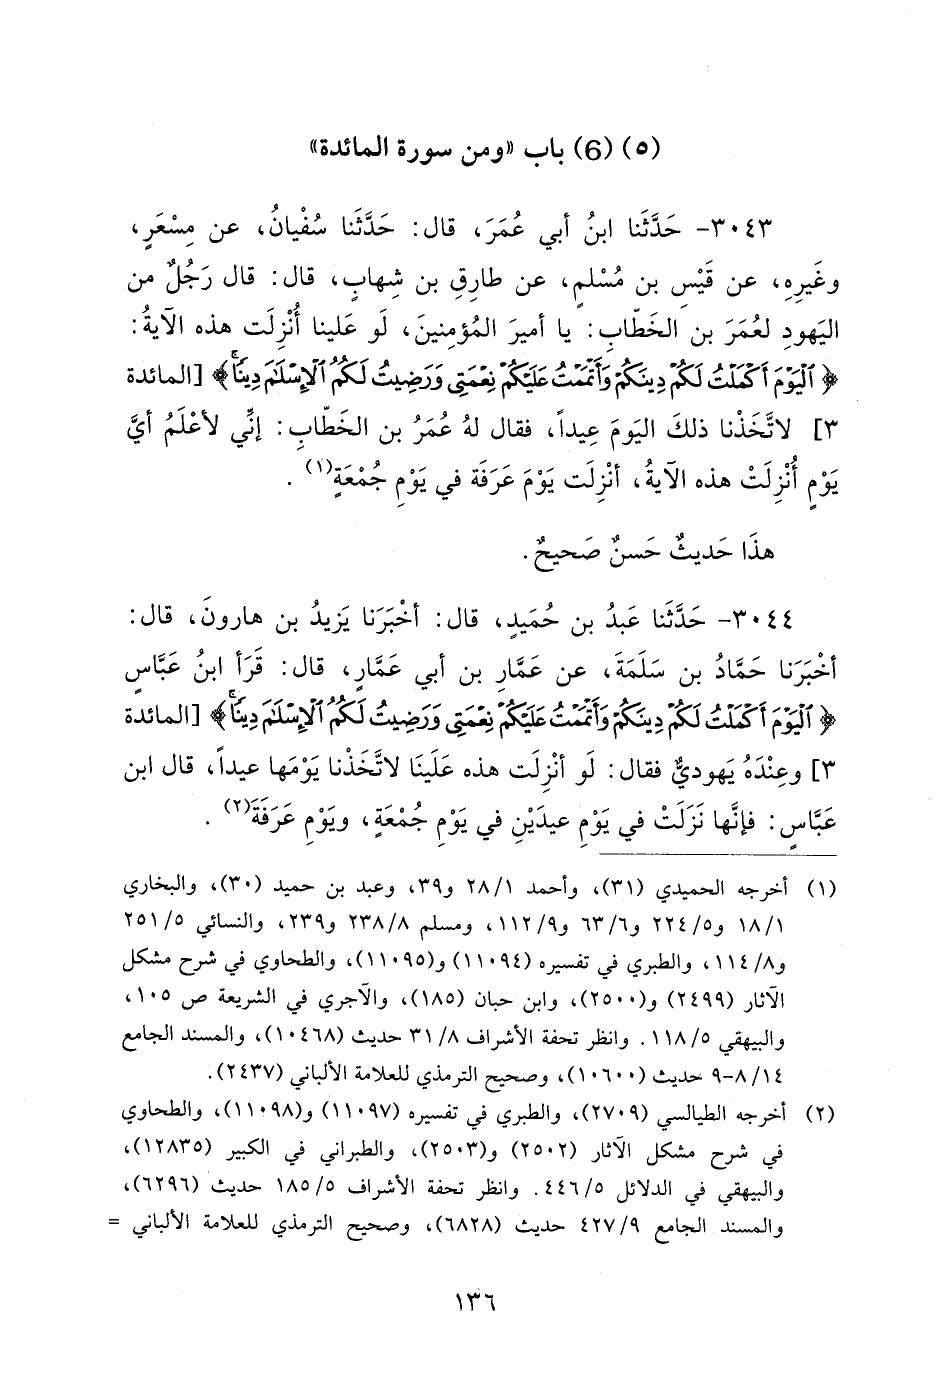 (٥) (6) باب «ومن سورة المائدة»
٣٠٤٣- حَدَّثَنا ابنُ أبي عُمَرَ، قال: حَدَّثَنا سُفْيانُ، عن مِسْعَرٍ،
وغَيرِهِ، عن قَيْسِ بن مُسْلمٍ، عن طارِقِ بن شِهابٍ، قال: قال رَجُلٌ من
اليَهودِ لعُمَرَ بن الخَطّابِ: يا أميرَ المُؤمنينَ، لَو عَلينا أُنْزِلَت هذه الآيةُ:
﴿ ٱلْيَوْمَ أَكْمَلْتُ لَكُمْ دِينَكُمْ وَأَتْمَمْتُ عَلَيْكُمْ نِعْمَتِى وَرَضِيتُ لَكُمُ ٱلْإِسْلَـٰمَ دِينًاۚ﴾ [المائدة
٣] لاتَّخَذْنا ذلكَ اليَومَ عِيداً، فقال لهُ عُمَرُ بن الخَطّابِ: إنِّي لأعْلَمُ أيَّ
يَوْمٍ أُنْزِلَتْ هذه الآيةُ، أنْزِلَت يَوْمَ عَرَفَة في يَوْمِ جُمْعَةٍ(١) .
هذَا حَديثٌ حَسنٌ صَحيحٌ.
٣٠٤٤- حَدَّثَنا عَبدُ بن حُمَيدٍ، قال: أخْبَرَنا يَزيدُ بن هارونَ، قال:
أخْبَرَنا حَمَّادُ بن سَلَمَةَ، عن عَمَّارِ بن أبي عَمَّارٍ، قال: قَرَأ ابنُ عَبَّاسٍ
﴿ ٱلْيَوْمَ أَكْمَلْتُ لَكُمْ دِينَكُمْ وَأَتْمَمْتُ عَلَيْكُمْ نِعْمَتِى وَرَضِيتُ لَكُمُ ٱلْإِسْلَـٰمَ دِينًاۚ﴾ [المائدة
٣] وعِنْدَهُ يَهوديٌّ فقال: لَو أنْزِلَت هذه عَلَينَا لاتَّخَذْنا يَوْمَها عيداً، قال ابن
عَبَّاسٍ: فإنَّها نَزَلَتْ في يَوْمِ عيدَيْنِ في يَوْمِ جُمْعَةٍ، ويَوْمِ عَرَفَةَ(٢) .
(١) أخرجه الحميدي (٣١)، وأحمد ٢٨/١ و٣٩، وعبد بن حميد (٣٠)، والبخاري
١٨/١ و٢٢٤/٥ و٦٣/٦ و١١٢/٩، ومسلم ٢٣٨/٨ و٢٣٩، والنسائي ٢٥١/٥
و١١٤/٨، والطبري في تفسيره (١١٠٩٤) و(١١٠٩٥)، والطحاوي في شرح مشكل
الآثار (٢٤٩٩) و(٢٥٠٠)، وابن حبان (١٨٥)، والآجري في الشريعة ص ١٠٥،
والبيهقي ١١٨/٥. وانظر تحفة الأشراف ٣١/٨ حديث (١٠٤٦٨)، والمسند الجامع
٨/١٤-٩ حديث (١٠٦٠٠)، وصحيح الترمذي للعلامة الألباني (٢٤٣٧).
(٢) أخرجه الطيالسي (٢٧٠٩)، والطبري في تفسيره (١١٠٩٧) و(١١٠٩٨)، والطحاوي
في شرح مشكل الآثار (٢٥٠٢) و(٢٥٠٣)، والطبراني في الكبير (١٢٨٣٥)،
والبيهقي في الدلائل ٤٤٦/٥. وانظر تحفة الأشراف ١٨٥/٥ حديث (٦٢٩٦)،
والمسند الجامع ٤٢٧/٩ حديث (٦٨٢٨)، وصحيح الترمذي للعلامة الألباني =
١٣٦